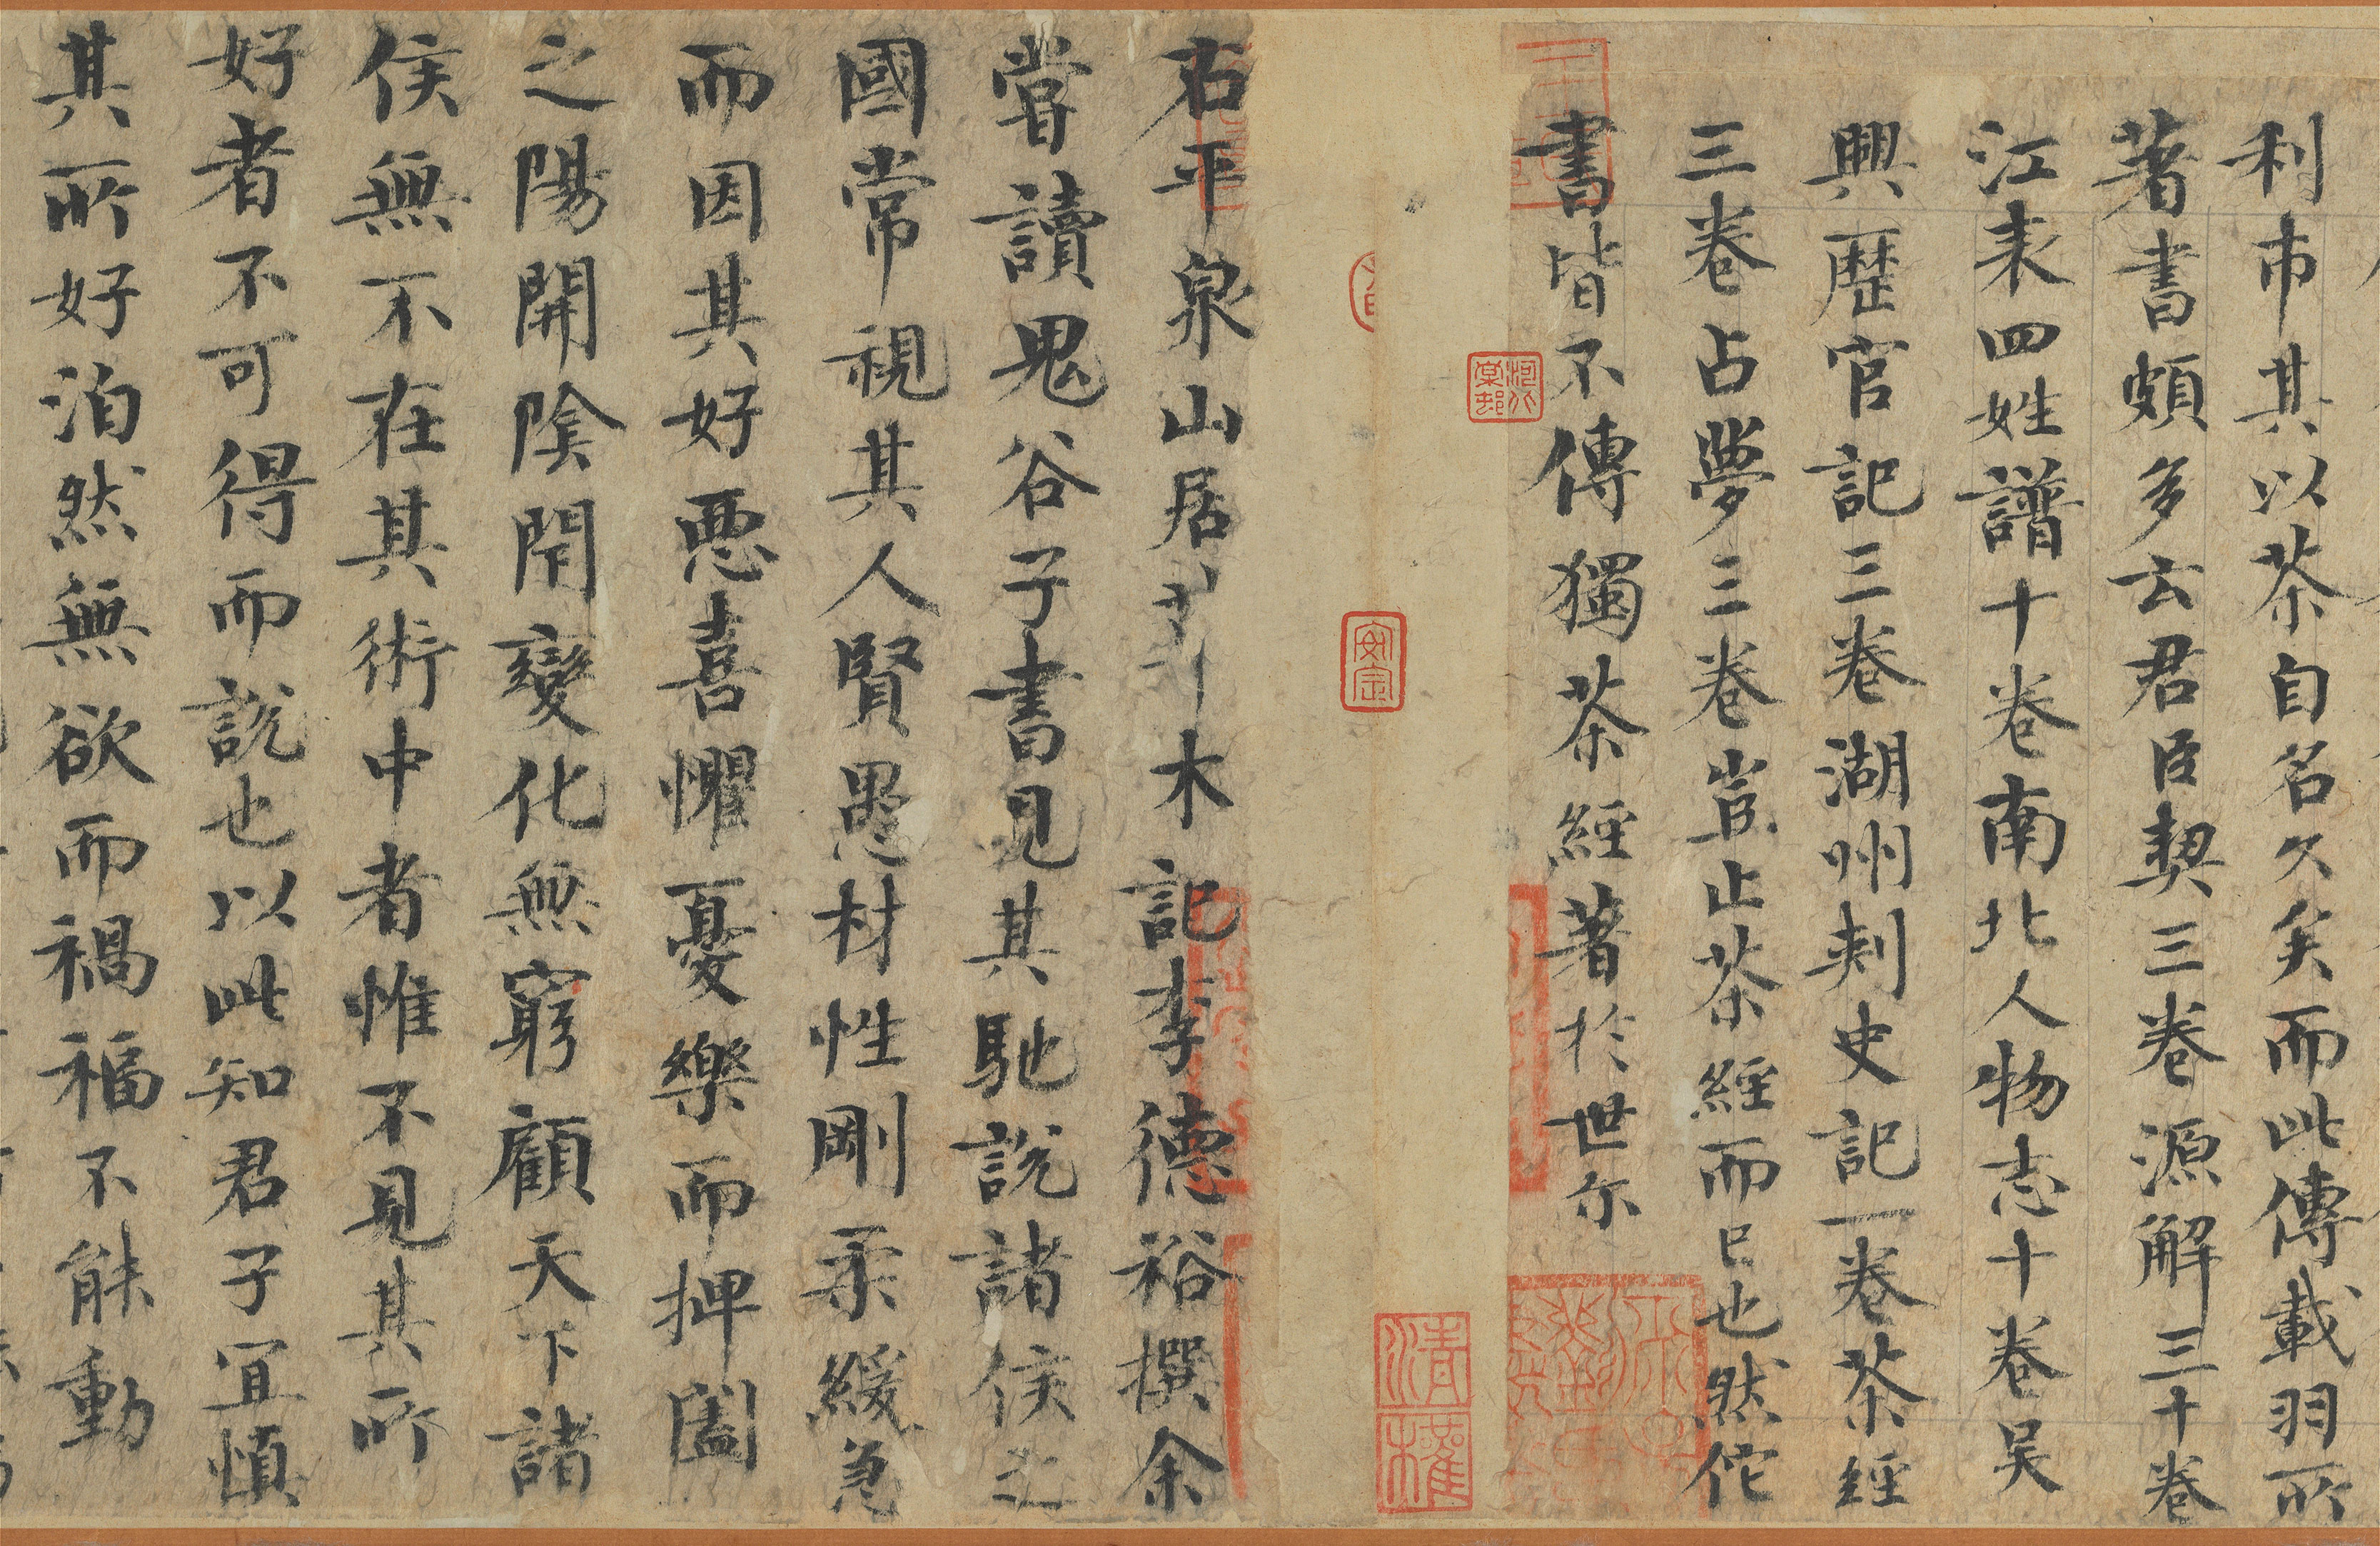 利市其以茶自名久矣而此傳載羽所
著書頗多云君臣契三卷源解三十卷
江表四姓譜十卷南北人物志十卷吴
興歷官記三卷湖州刺史記一卷茶經
三卷占夢三卷豈止茶經而已也然佗
書皆不傳獨茶經著於世尔
右平泉山居草木記李德裕撰余
嘗讀鬼谷子書見其馳說諸侯之
國常視其人賢愚材性剛柔緩急
而因其好惡喜懼憂樂而捭闔
之陽開陰閉變化無窮顧天下諸
侯無不在其術中者惟不見其所
好者不可得而說也以此知君子宜慎
其所好泊然無欲而禍福不能動